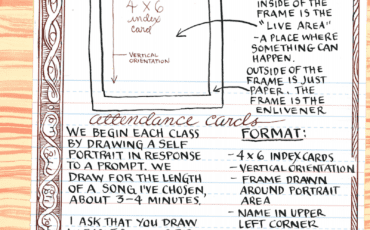 4 x 6
index
card
VERTICAL
ORIENTATION
INSIDE OF THE
FRAME IS THE
"LIVE AREA"
- A PLACE WHERE
SOMETHING CAN
HAPPEN.
OUTSIDE OF THE
FRAME IS JUST
PAPER. THE
FRAME IS THE
ENLIVENER
attendance cards
WE BEGIN EACH CLASS
BY DRAWING A SELF
PORTRAIT IN RESPONSE
TO A PROMPT. WE
DRAW FOR THE LENGTH
OF A SONG I'VE CHOSEN,
ABOUT 3-4 MINUTES.
I ASK THAT YOU DRAW
FORMAT:
- 4 x 6 INDEX CARDS
- VERTICAL ORIENTATION
- FRAME DRAWN
AROUND PORTRAIT
AREA
- NAME IN UPPER
LEFT CORNER